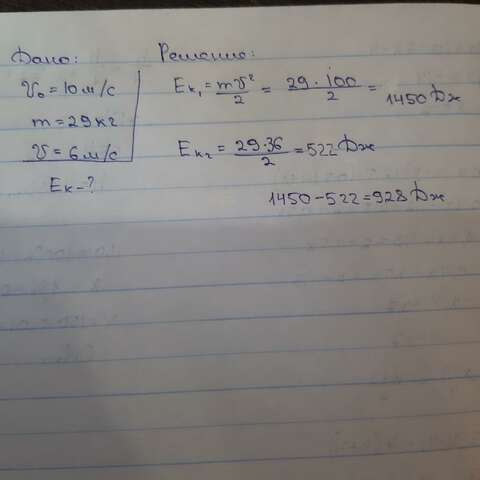 Дано:
V₀ = 10 м/с
m = 29 кг
V = 6 м/с
Eк – ?
Решение:
Eк₁ = mV²/2 = 29 · 100/2 = 1450 Дж
Eк₂ = 29·36/2 = 522 Дж
1450 – 522 = 928 Дж